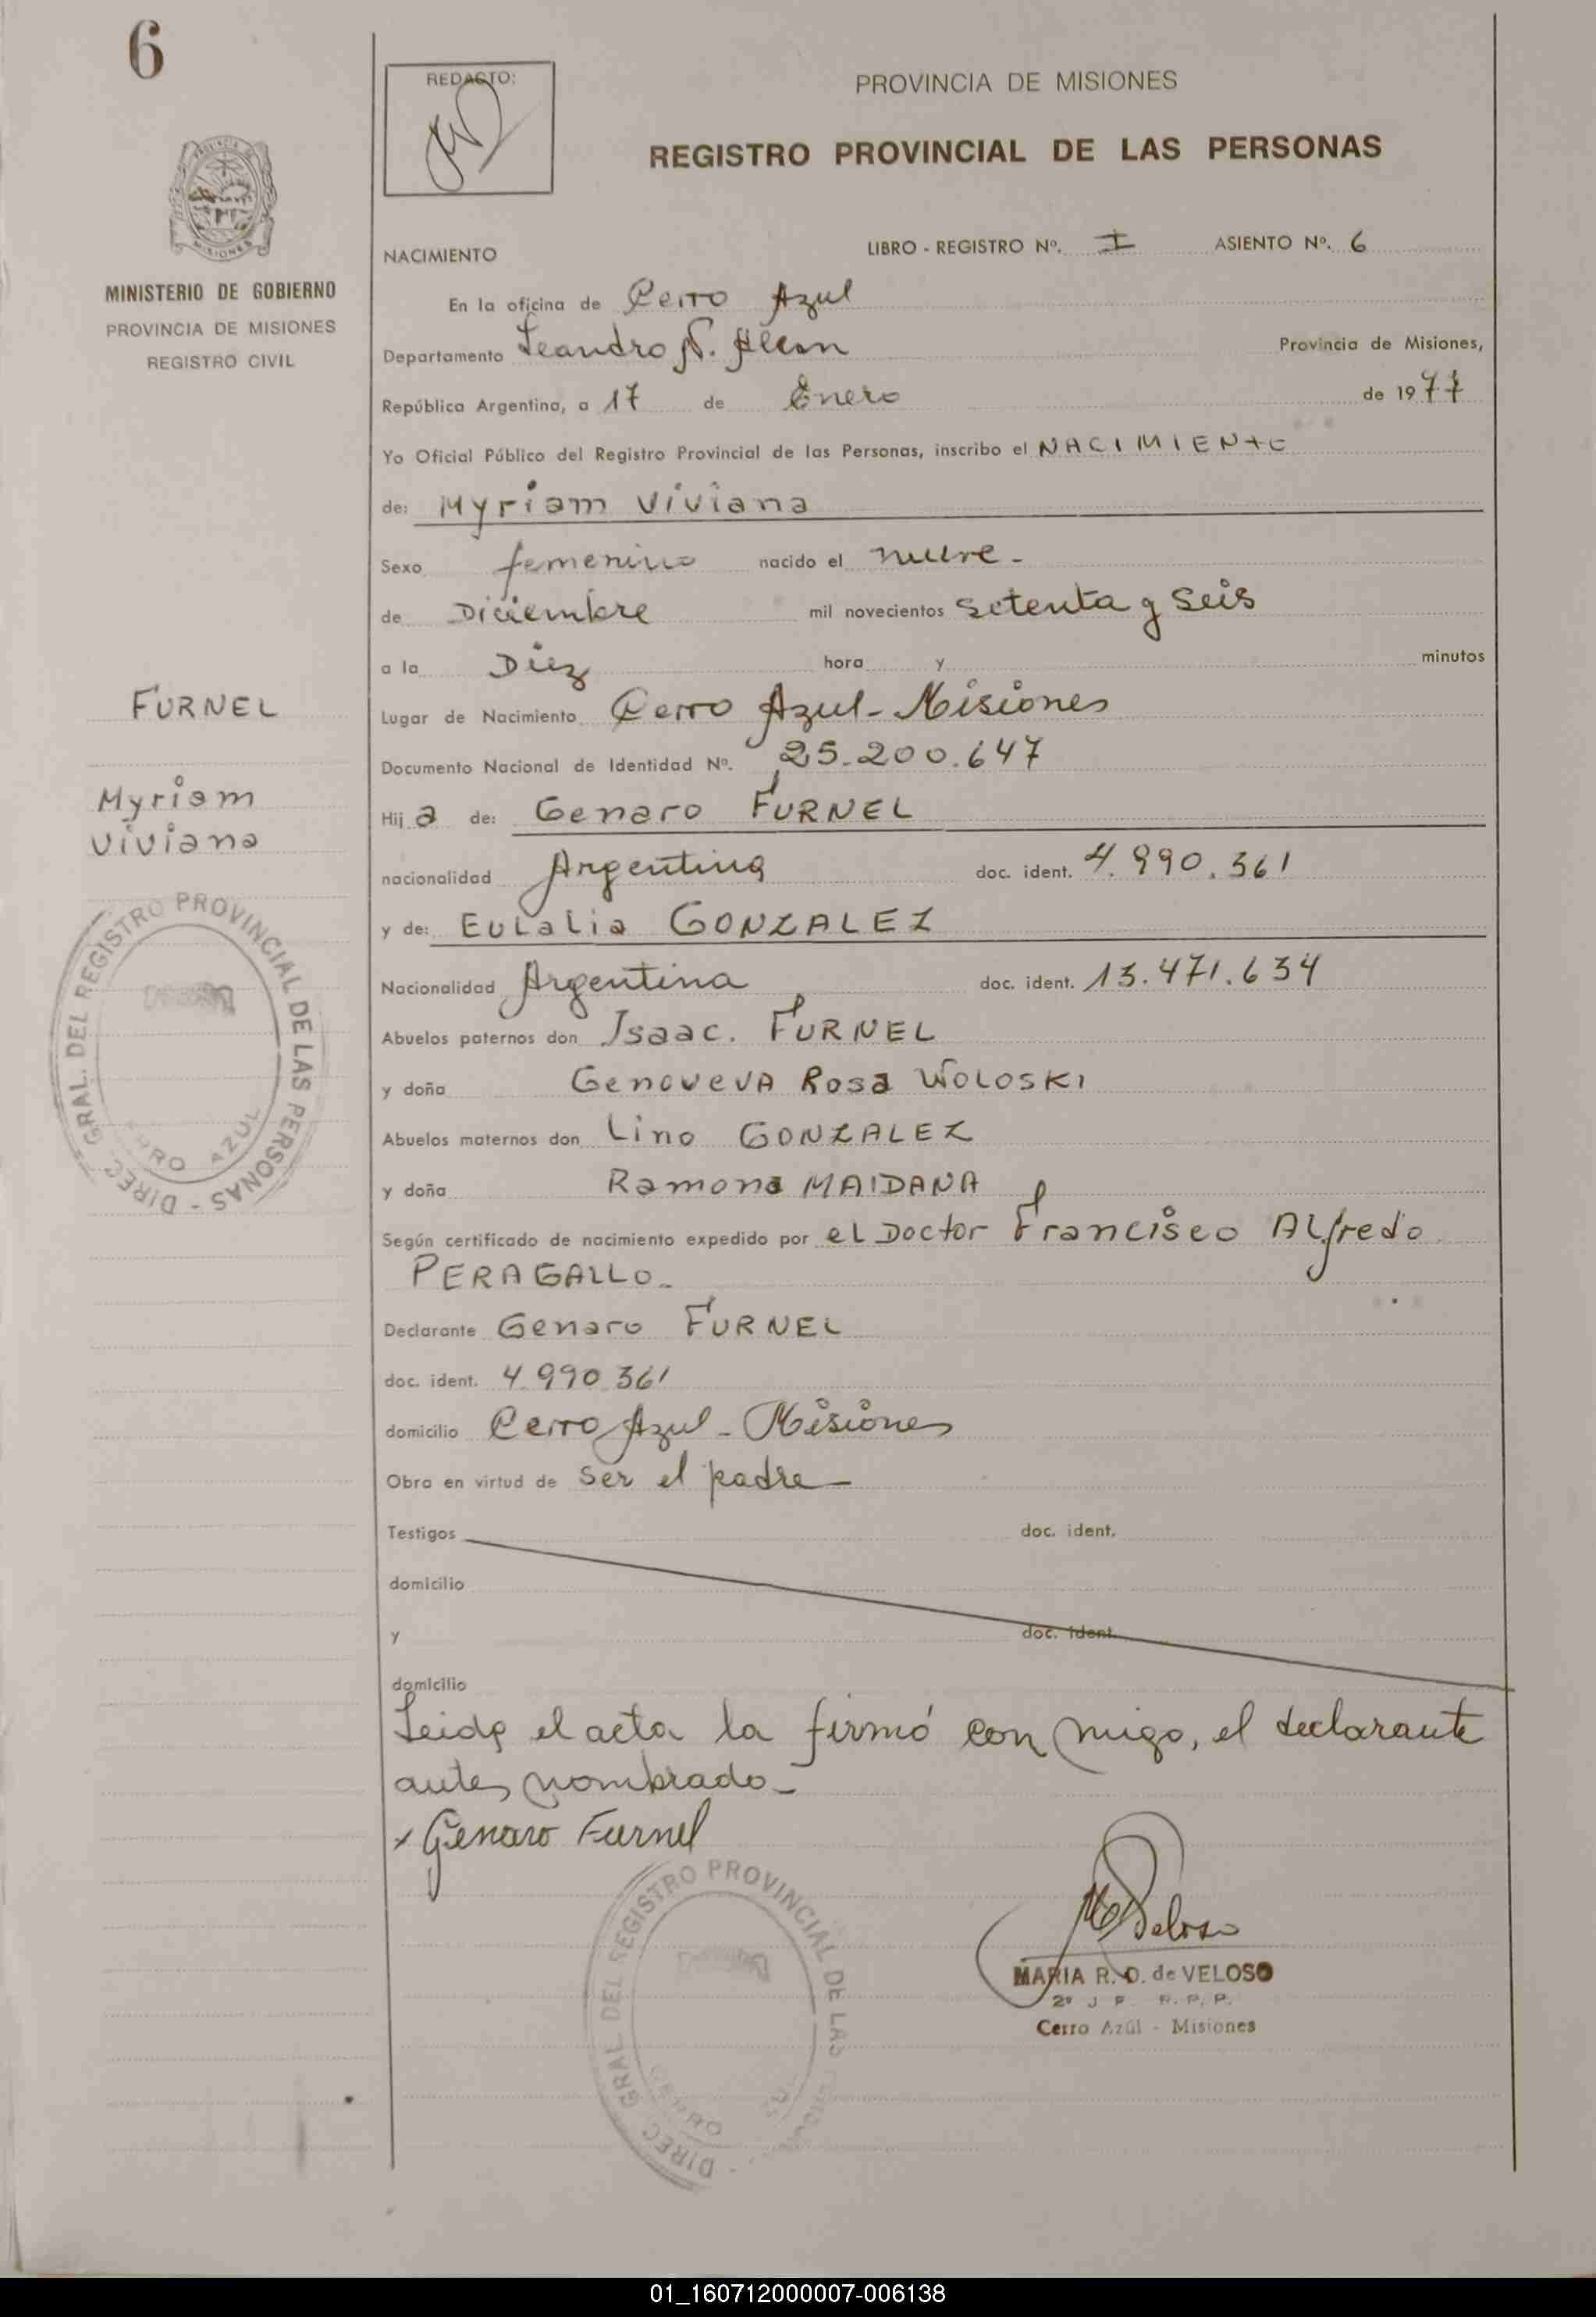 6
REDACTO:
PROVINCIA DE MISIONES
REGISTRO PROVINCIAL DE LAS PERSONAS
MISIONES
MINISTERIO DE GOBIERNO
PROVINCIA DE MISIONES
REGISTRO CIVIL
NACIMIENTO LIBRO - REGISTRO Nº. I ASIENTO Nº. 6
En la oficina de Cerro Azul
Departamento Leandro N. Alem Provincia de Misiones,
República Argentina, a 17 de Enero de 1977
Yo Oficial Público del Registro Provincial de las Personas, inscribo el NACIMIENTO
de: Myriam Viviana
Sexo femenino nacido el nueve -
de Diciembre mil novecientos setenta y seis
a la Diez hora y minutos
FURNEL
Lugar de Nacimiento Cerro Azul - Misiones
Documento Nacional de Identidad Nº. 25.200.647
Myriam
Viviana
Hij a de: Genaro FURNEL
nacionalidad Argentina doc. ident. 4.990.361
y de: Eulalia GONZALEZ
Nacionalidad Argentina doc. ident. 13.471.634
Abuelos paternos don Isaac. FURNEL
y doña Genoveva Rosa WOLOSKI
Abuelos maternos don Lino GONZALEZ
y doña Ramona MAIDANA
DIREC. GRAL. DEL REGISTRO PROVINCIAL DE LAS PERSONAS -
CERRO AZUL
Según certificado de nacimiento expedido por el Doctor Francisco Alfredo
PERAGALLO -
Declarante Genaro FURNEL
doc. ident. 4.990.361
domicilio Cerro Azul - Misiones
Obra en virtud de ser el padre -
Testigos doc. ident.
domicilio
y doc. ident.
domicilio
Leida el acta la firmó con migo, el declarante
antes nombrado -
x Genaro Furnel
Veloso
MARIA R. O. de VELOSO
2º J. P. R. P. P.
Cerro Azúl - Misiones
DIREC GRAL DEL REGISTRO PROVINCIAL DE LAS
CERRO
01_160712000007-006138